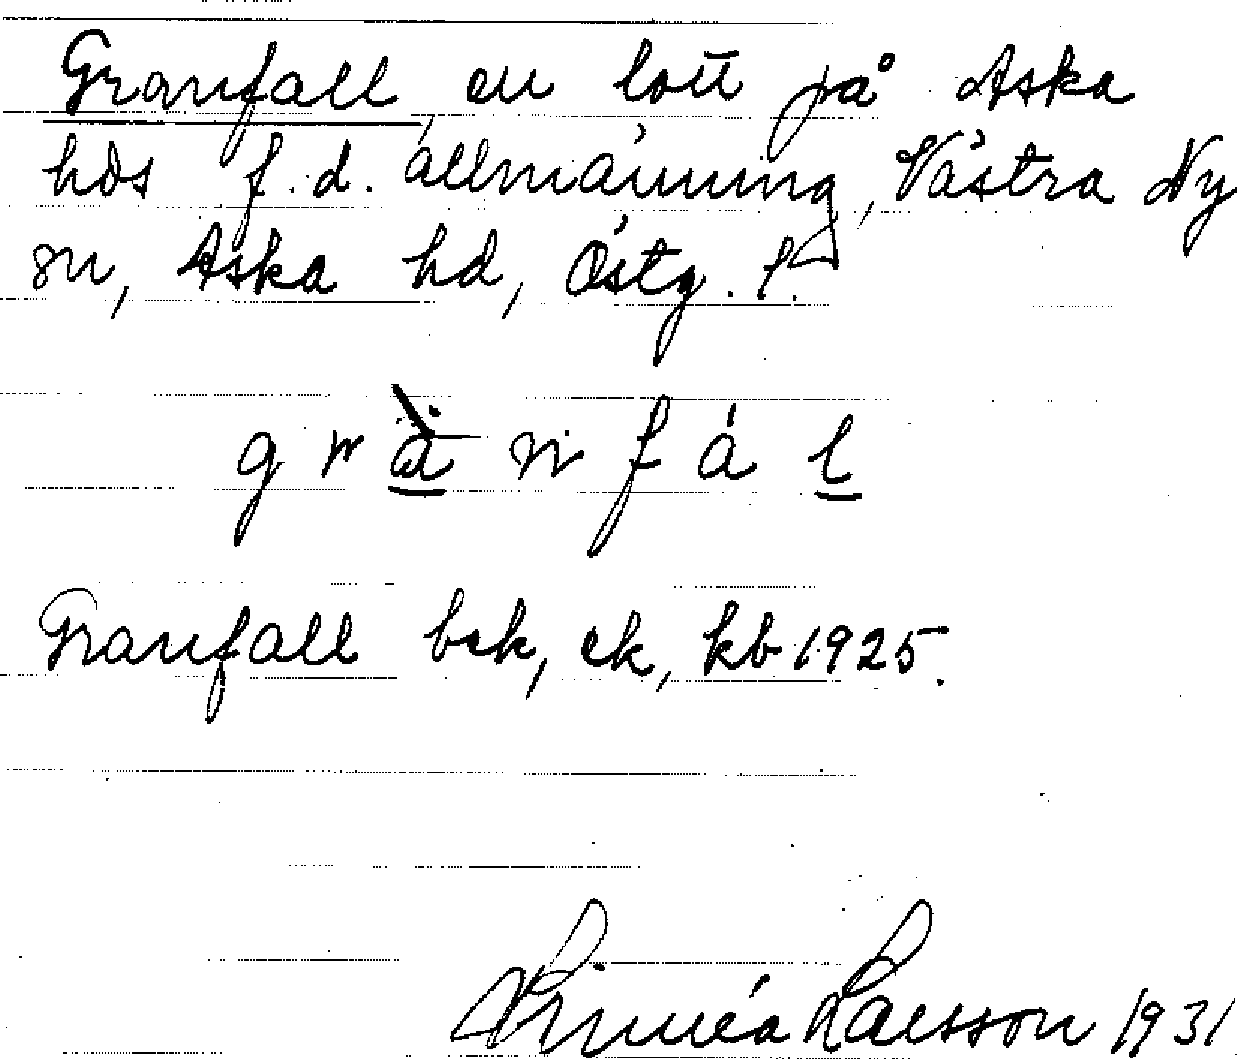 Granfall, en lott på Aska
hds f.d. allmänning, Västra Ny
sn, Aska hd, Östg. l.
g r à n f á l
Granfall bek, ek, kb 1925.
Linnéa Larsson 1931